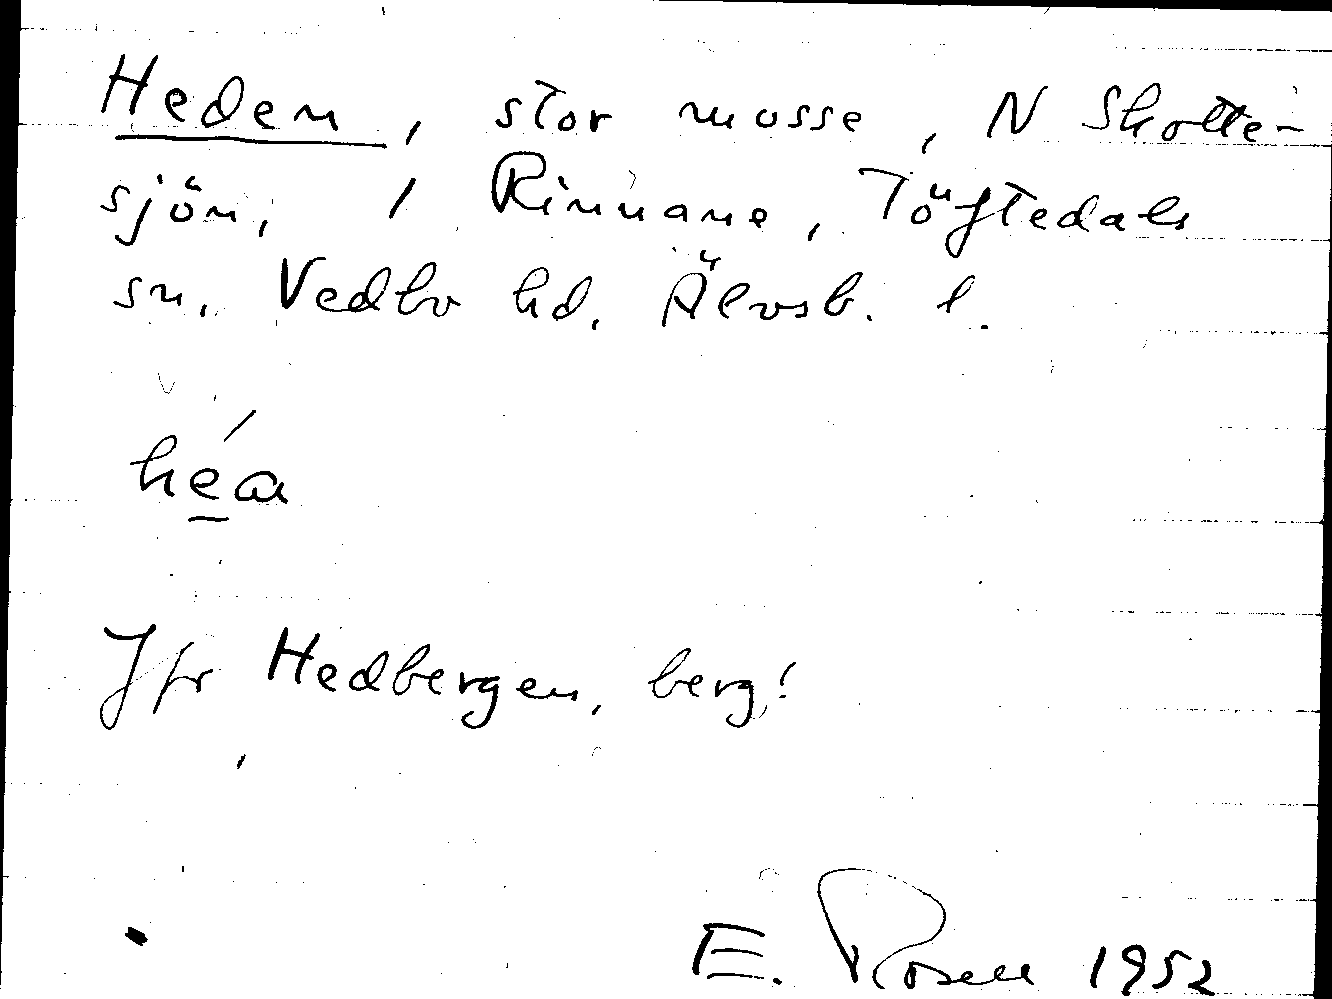 Heden, stor mosse, N Skotte-
sjön, / Rinnane, Töftedals
sn. Vedbo hd. Älvsb. l.
Jfr Hedbergen, berg!
E. Rosell 1952